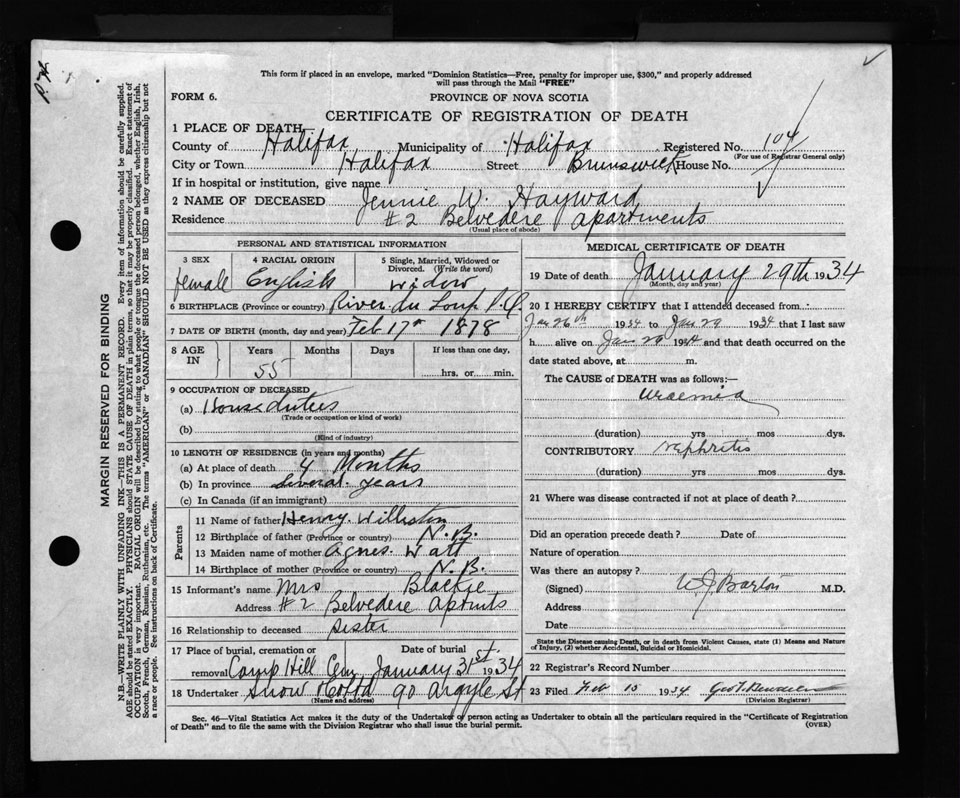 This form if placed in an envelope, marked "Dominion Statistics—Free, penalty for improper use, $300," and properly addressed
will pass through the Mail "FREE"
FORM 6.
PROVINCE OF NOVA SCOTIA
CERTIFICATE OF REGISTRATION OF DEATH
1 PLACE OF DEATH
County of Halifax Municipality of Halifax Registered No. 104
(For use of Registrar General only)
City or Town Halifax Street Brunswick House No.
If in hospital or institution, give name
2 NAME OF DECEASED Jennie W. Hayward
Residence #2 Belvedere Apartments
(Usual place of abode)
PERSONAL AND STATISTICAL INFORMATION
3 SEX female
4 RACIAL ORIGIN English
5 Single, Married, Widowed or Divorced. (Write the word) Widow
6 BIRTHPLACE (Province or country) River du Loup P.Q.
7 DATE OF BIRTH (month, day and year) Feb 17th 1878
8 AGE IN Years 55 Months Days If less than one day, hrs. or min.
9 OCCUPATION OF DECEASED
(a) House duties
(Trade or occupation or kind of work)
(b)
(Kind of industry)
10 LENGTH OF RESIDENCE (in years and months)
(a) At place of death 4 Months
(b) In province Several years
(c) In Canada (if an immigrant)
Parents
11 Name of father Henry Williston
12 Birthplace of father (Province or country) N.B.
13 Maiden name of mother Agnes Watt
14 Birthplace of mother (Province or country) N.B.
15 Informant's name Mrs Blackie
Address #2 Belvedere Aptmts
16 Relationship to deceased Sister
17 Place of burial, cremation or Date of burial
removal Camp Hill Cem January 31st 1934
18 Undertaker Snow 90 Argyle St
(Name and address)
MEDICAL CERTIFICATE OF DEATH
19 Date of death January 29th 1934
(Month, day and year)
20 I HEREBY CERTIFY that I attended deceased from
Jan 26th 1934 to Jan 29 1934 that I last saw
h alive on Jan 29 19 and that death occurred on the
date stated above, at m.
The CAUSE of DEATH was as follows:—
Uraemia
(duration) yrs mos dys.
CONTRIBUTORY Nephritis
(duration) yrs mos dys.
21 Where was disease contracted if not at place of death?
Did an operation precede death? Date of
Nature of operation
Was there an autopsy?
(Signed) W J Barton M.D.
Address
Date
State the Disease causing Death, or in death from Violent Causes, state (1) Means and Nature
of Injury, (2) whether Accidental, Suicidal or Homicidal.
22 Registrar's Record Number
23 Filed Feb 10 1934
(Division Registrar)
Sec. 46—Vital Statistics Act makes it the duty of the Undertaker or person acting as Undertaker to obtain all the particulars required in the "Certificate of Registration
of Death" and to file the same with the Division Registrar who shall issue the burial permit. (OVER)
MARGIN RESERVED FOR BINDING
N.B.—WRITE PLAINLY WITH UNFADING INK—THIS IS A PERMANENT RECORD. Every item of information should be carefully supplied.
AGE should be stated EXACTLY. PHYSICIANS should STATE CAUSE OF DEATH in plain terms, so that it may be properly classified. Exact statement of
OCCUPATION is very important. RACIAL ORIGIN will be described by stating to what people or tongue the deceased person belonged, whether English, Irish,
Scotch, French, German, Russian, Ruthenian, etc. The terms "AMERICAN" or "CANADIAN" SHOULD NOT BE USED as they express citizenship but not
a race or people. See instructions on back of Certificate.